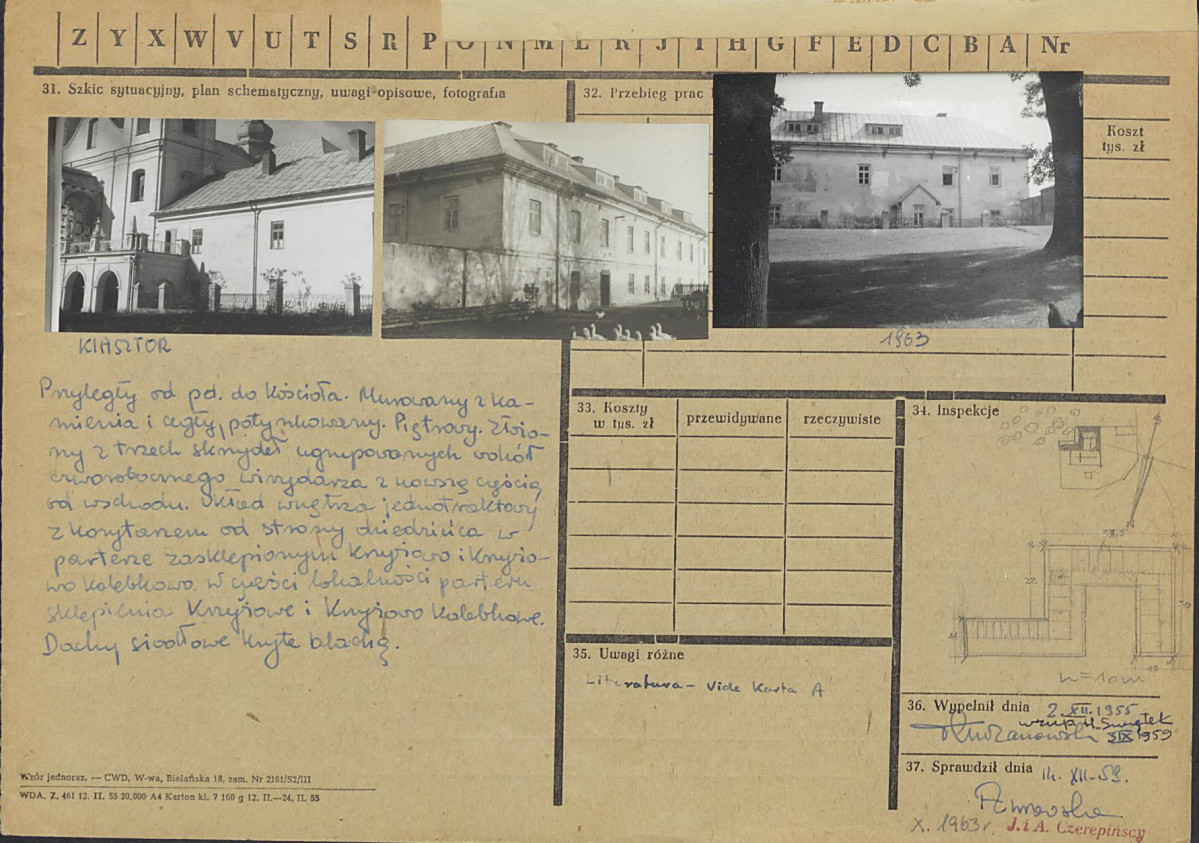 Z Y X W V U T S R P O N M L K J I H G F E D C B A Nr
31. Szkic sytuacyjny, plan schematyczny, uwagi opisowe, fotografia
32. Przebieg prac
Koszt
tys. zł
KLASZTOR
1963
Przyległy od pd. do kościoła. Murowany z ka-
mienia i cegły, potynkowany. Piętrowy. Złożo-
ny z trzech skrzydeł ugrupowanych wokół
czworobocznego wirydarza z nowszą częścią
od wschodu. Układ wnętrza jednotraktowy
z korytarzem od strony dziedzińca w
parterze zasklepionym krzyżowo i krzyżo-
wo kolebkowo. W części lokalności parteru
sklepienia krzyżowe i krzyżowo kolebkowe.
Dachy siodłowe kryte blachą.
33. Koszty
w tys. zł
przewidywane
rzeczywiste
34. Inspekcje
22
h = 10 m
35. Uwagi różne
Literatura – vide Karta A
36. Wypełnił dnia 2. XII. 1955
H. Świątek
3 IX 1959
37. Sprawdził dnia 14. XII-59.
X. 1963 r. J. i A. Czerepińscy
Wzór jednoraz. — CWD, W-wa, Bielańska 18, zam. Nr 2161/S2/III
WDA. Z. 461 12. II. 55 20,000 A4 Karton kl. 7 160 g 12. II.—24. II. 55